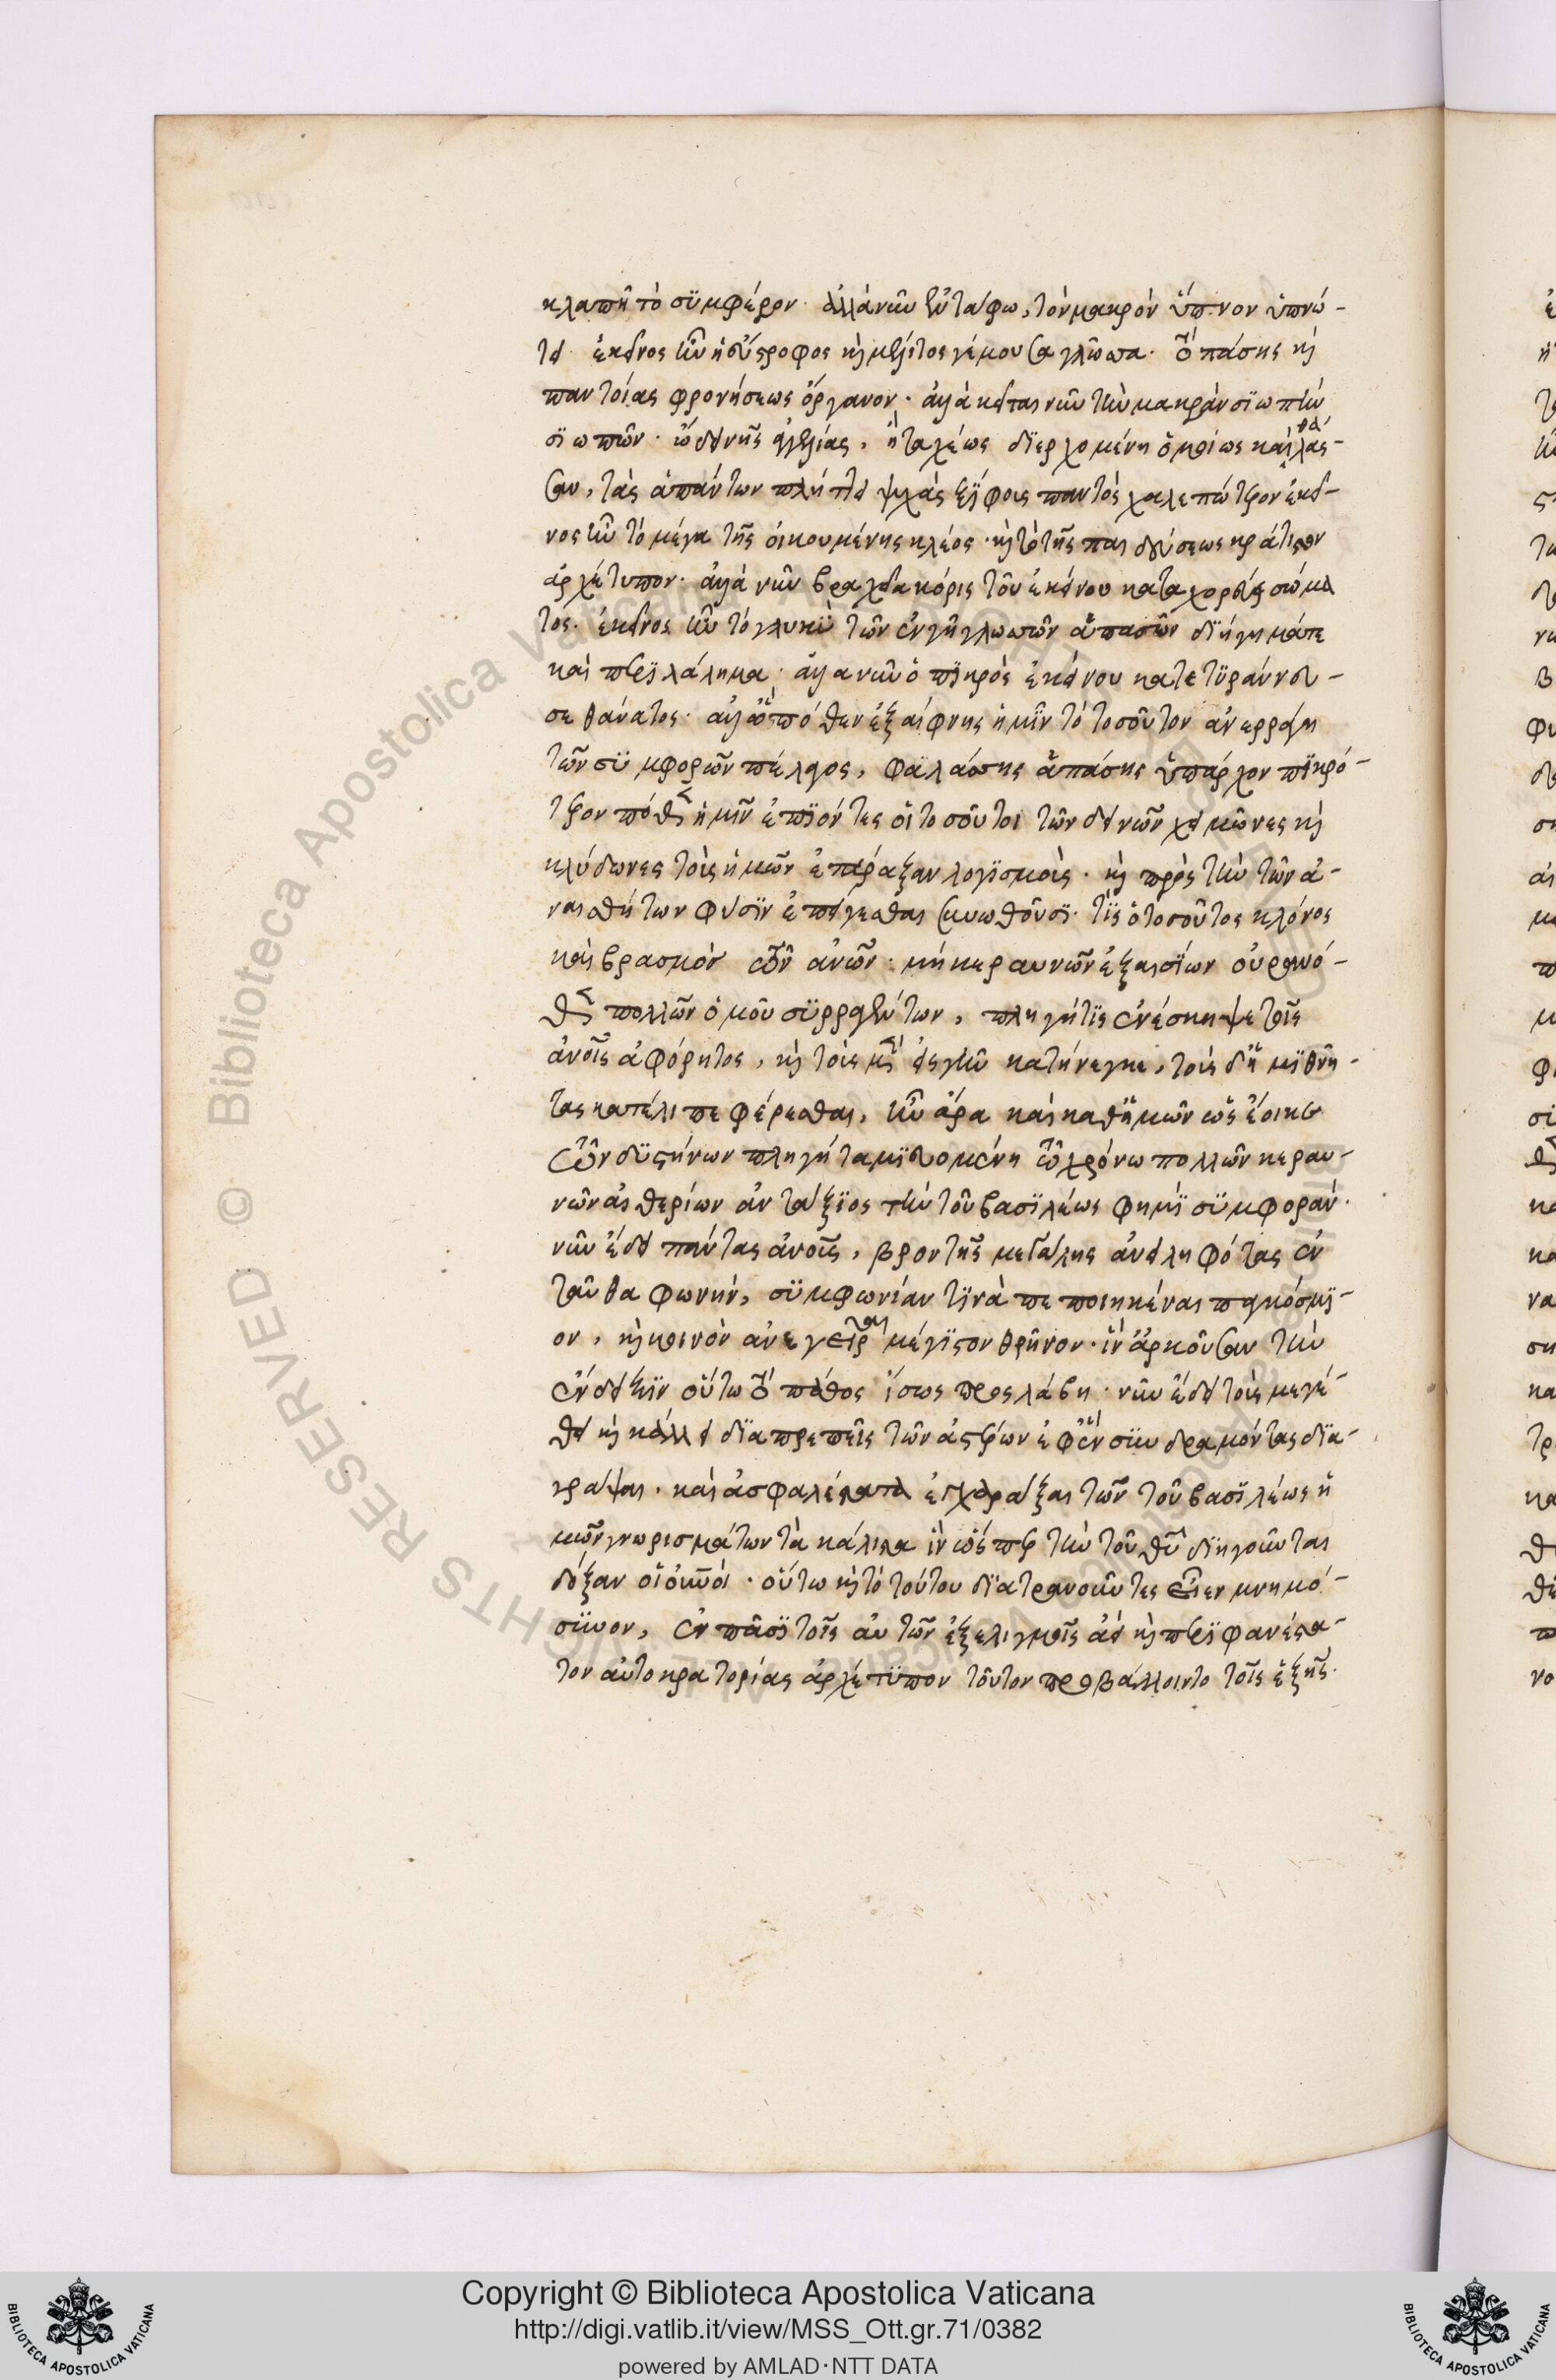 κλαπῆ τὸ συμφέρον· ἀλλὰ νῦν ἐν τάφω, τὸν μακρὸν ὕπνον ὑπνώ-
τει ἐκεῖνος ἦν ἡ εὔστροφος κὴ μέλιτος γέμουσα γλῶσσα· τὸ πάσης κὴ
παντοίας φρονήσεως ὄργανον· ἀλλὰ κεῖται νῦν τὴν μακρὰν σϊωπὴν
σϊωπῶν· ὢ δεινῆς ἀγγελίας, ἣ ταχέως δϊερχομένη
τὰς ἁπάντων πλήττει ψυχὰς ξίφους παντὸς χαλεπώτερον ἐκεῖ-
νος ἦν τὸ μέγα τῆς οἰκουμένης κλέος· κὴ τὸ τῆς παιδεύσεως κράτιστον
ἀρχέτυπον· ἀλλὰ νῦν βραχεῖα κόνις τοῦ ἐκείνου κατα σώμα
τος· ἐκεῖνος ἦν τὸ γλυκὺ τῶν ἐν γῆ γλωσσῶν ἁπασῶν δϊήγημά τε
καὶ περϊλάλημα· ἀλλὰ νῦν ὁ πϊκρὸς ἐκείνου κατετϋράννευ-
σε θάνατος· ἀλλ' ὢ πόθεν ἐξαίφνης ἡμῖν τὸ τοσοῦτον ἀνερράγη
τῶν συμφορῶν πέλαγος, θαλάσσης ἁπάσης ὑπάρχον πϊκρό-
τερον πόθεν ἡμῖν ἐπϊόντες οἱ τοσοῦτοι τῶν δεινῶν χειμῶνες κὴ
κλύδωνες τοῖς ἡμῶν ἐπέραξαν λογϊσμοῖς· κὴ πρὸς τὴν τῶν ἀ-
ναισθήτων φύσϊν ἐπείγεσθαι συνωθοῦσϊ· τίς ὁ τοσοῦτος κλόνος
καὶ βρασμὸς τῶν ἀνῶν· μὴ κεραυνῶν ἐξαισΐων οὐρανό-
θεν πολλῶν ὁμοῦ σϋρραγέντων, πληγή τϊς ἐνέσκηψε τοῖς
ἀνοῖς ἀφόρητος, κὴ τοὺς μὲν εἰς γῆν κατήνεγκε, τοὺς δ' ἡμϊθνῆ-
τας κατέλιπε φέρεσθαι, ἦν ἄρα καὶ καθ' ἡμῶν ὡς ἔοικε
τῶν δϋστήνων πληγὴ ταμϊευομένη τῶ χρόνω πολλῶν κεραυ-
νῶν αἰθερίων ἀντάξϊος τὴν τοῦ βασϊλέως φημὶ συμφοράν·
νῦν ἔδει πάντας ἀνοῖς, βροντῆς μεγάλης ἀνειληφότας ἐν
ταῦθα φωνήν, συμφωνίαν τϊνὰ πεποιηκέναι παγκόσμϊ-
ον, κὴ κοινὸν ἀνεγεῖραι μέγϊστον θρῆνον· ἵν' ἀρκοῦσαν τὴν
ἔνδειξϊν οὕτω τὸ πάθος ἴσως προςλάβη· νῦν ἔδει τοὺς μεγέ-
θει κὴ κάλλει δϊαπρεπεῖς τῶν ἀστέρων ἐφ' ἓν συνδραμόντας δϊα-
γράψαι· καὶ ἀσφαλέστατα ἐγχαράξαι τῶν τοῦ βασϊλέως ἡ
μῶν γνωρισμάτων τὰ κάλιστα ἵν' ὥςπερ τὴν τοῦ θῦ διηγοῦνται
δόξαν οἱ οὐνοί· οὕτω κὴ τὸ τούτου δϊατρανοῦντες εἶεν μνημό-
συνον, ἐν πᾶσϊ τοῖς αὐτῶν ἐξελιγμοῖς ἀεὶ κὴ περϊφανέστα-
τον αὐτοκρατορίας ἀρχέτϋπον τοῦτον προβάλλοιντο τοῖς ἑξῆς·
Copyright © Biblioteca Apostolica Vaticana
http://digi.vatlib.it/view/MSS_Ott.gr.71/0382
powered by AMLAD·NTT DATA